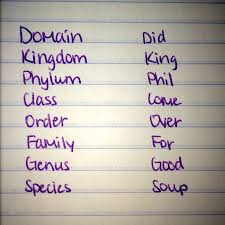 Domain Did
Kingdom King
Phylum Phil
Class Come
Order Over
Family For
Genus Good
Species Soup